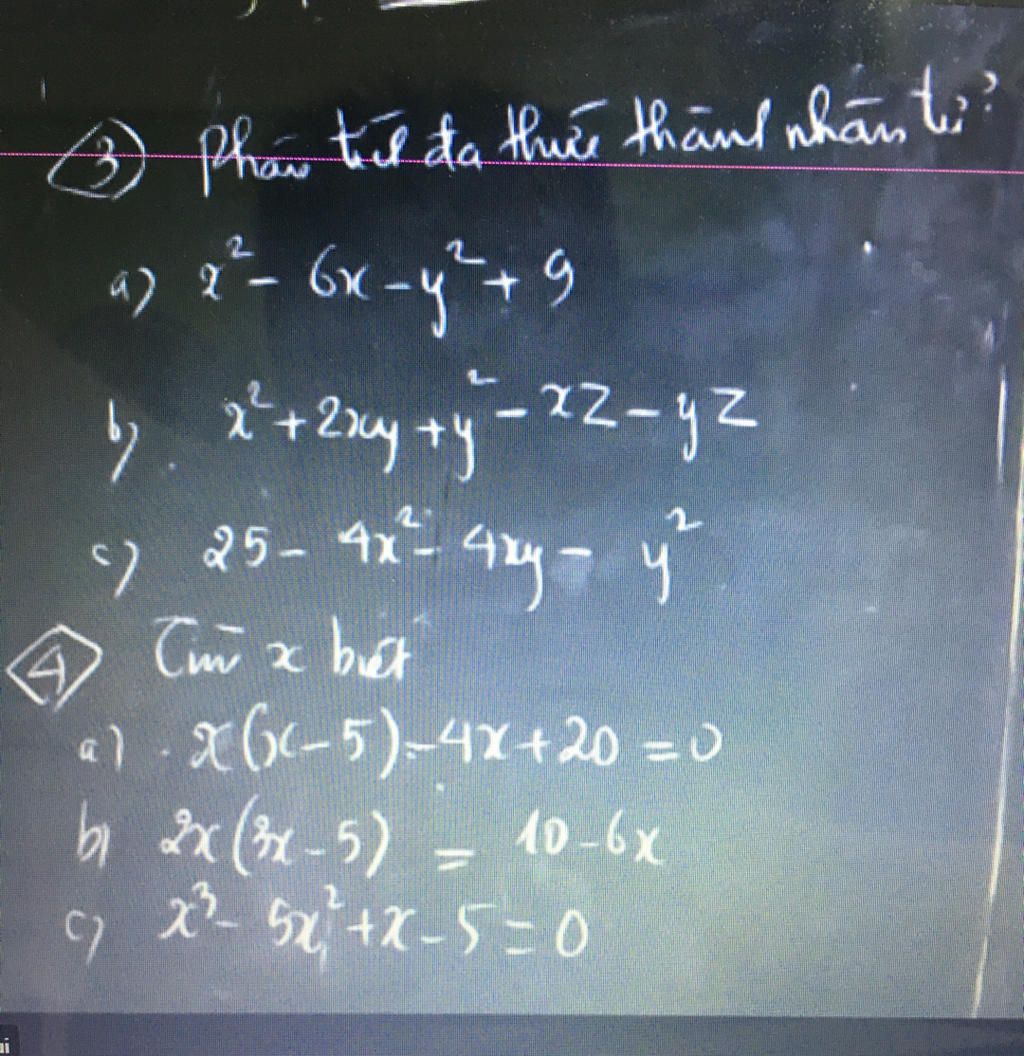 3 Phân tích đa thức thành nhân tử
a) x² - 6x - y² + 9
b) x² + 2xy + y² - xz - yz
c) 25 - 4x² - 4xy - y²
4 Tìm x biết
a) x(x - 5) - 4x + 20 = 0
b) 2x(3x - 5) = 10 - 6x
c) x³ - 5x² + x - 5 = 0